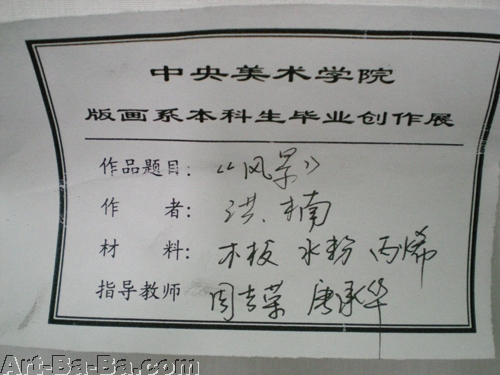 中央美术学院
版画系本科生毕业创作展
作品题目：《风景》
作者：洪楠
材料：木板 水粉 丙烯
指导教师 周吉荣 唐承华
Art-Ba-Ba.com